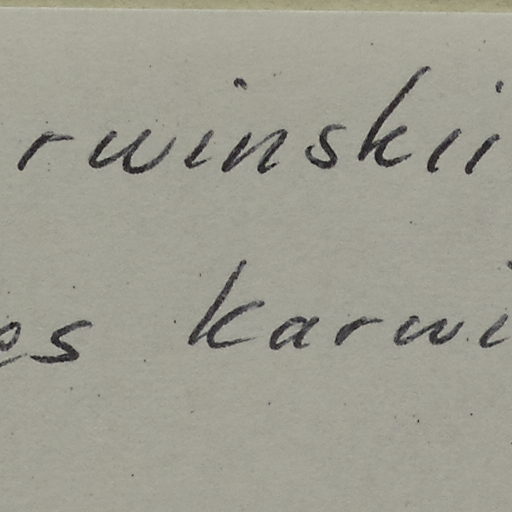 rwinskii
es karwi